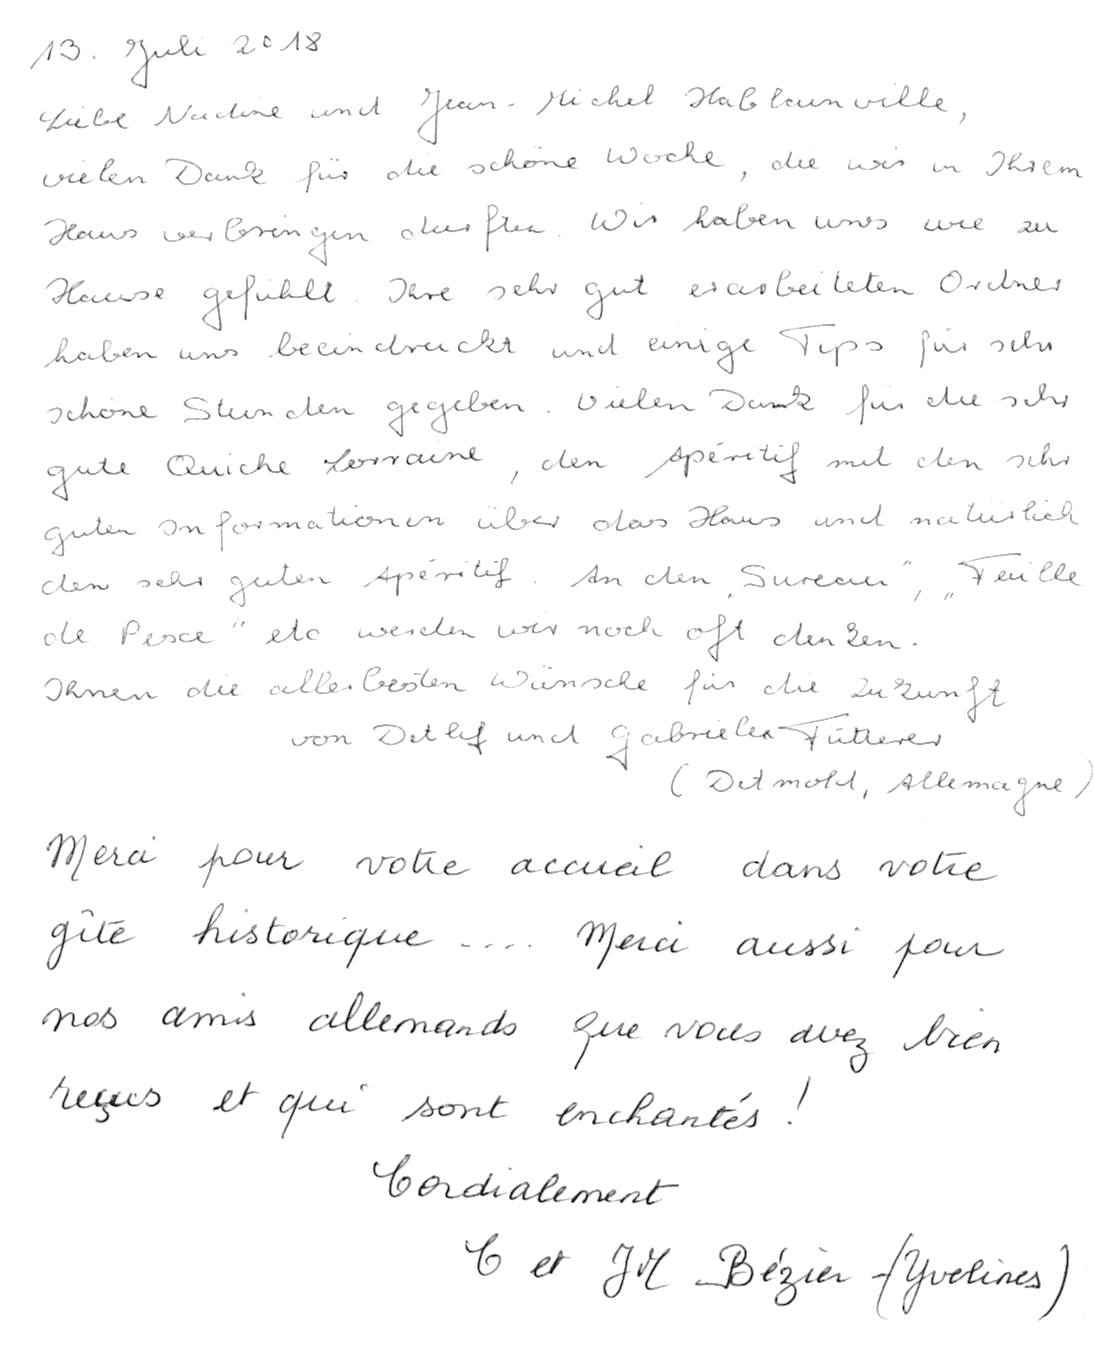 13. Juli 2018
Liebe Nadine und Jean-Michel Hablainville,
vielen Dank für die schöne Woche, die wir in Ihrem
Haus verbringen durften. Wir haben uns wie zu
Hause gefühlt. Ihre sehr gut erarbeiteten Ordner
haben uns beeindruckt und einige Tips für sehr
schöne Stunden gegeben. Vielen Dank für die sehr
gute Quiche Lorraine, den Apéritif mit den sehr
guten Informationen über das Haus und natürlich
den sehr guten Apéritif. An den „Sureau“, „Feuille
de Pesce“ etc werden wir noch oft denken.
Ihnen die allerbesten Wünsche für die Zukunft
von Detlef und Gabriela Fütterer
(Detmold, Allemagne)
Merci pour votre accueil dans votre
gîte historique .... Merci aussi pour
nos amis allemands que vous avez bien
reçus et qui sont enchantés !
Cordialement
C et JM Bézier (Yvelines)